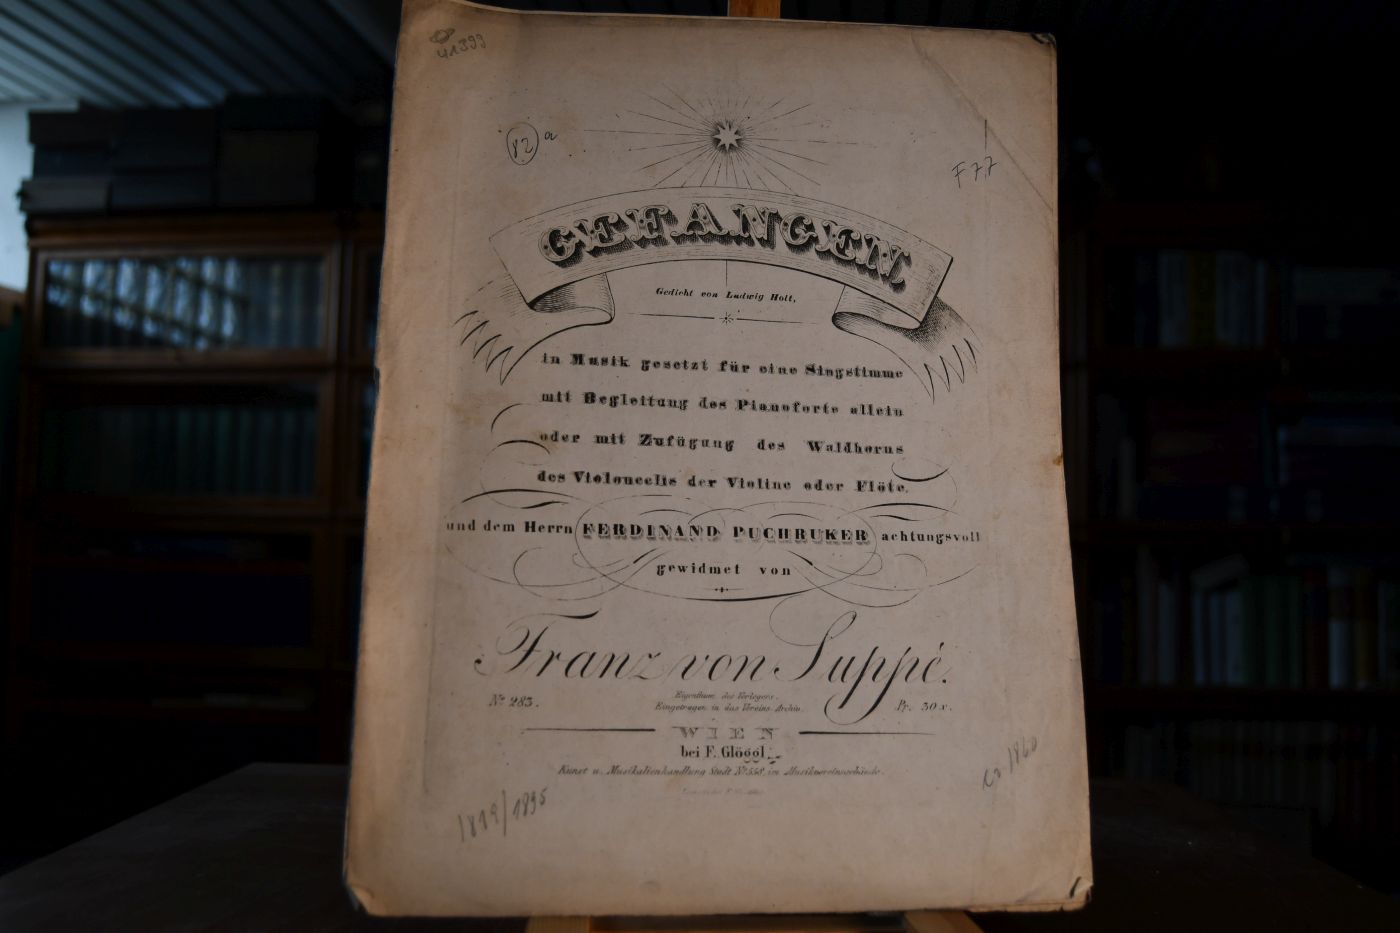 41399
82 a
F 7,7
GEFANGEN
Gedicht von Ludwig Holt,
in Musik gesetzt für eine Singstimme
mit Begleitung des Pianoforte allein
oder mit Zufügung des Waldhorns
des Violoncells der Violine oder Flöte,
und dem Herrn FERDINAND PUCHRUKER achtungsvoll
gewidmet von
Franz von Suppé.
Eigenthum des Verlegers.
Nº 283. Eingetragen in das Vereins-Archiv. Pr. 30 x.
WIEN
bei F. Glöggl,
Kunst u. Musikalienhandlung Stadt Nº 558, im Musikvereinsgebäude.
1819/1895
ca 1860